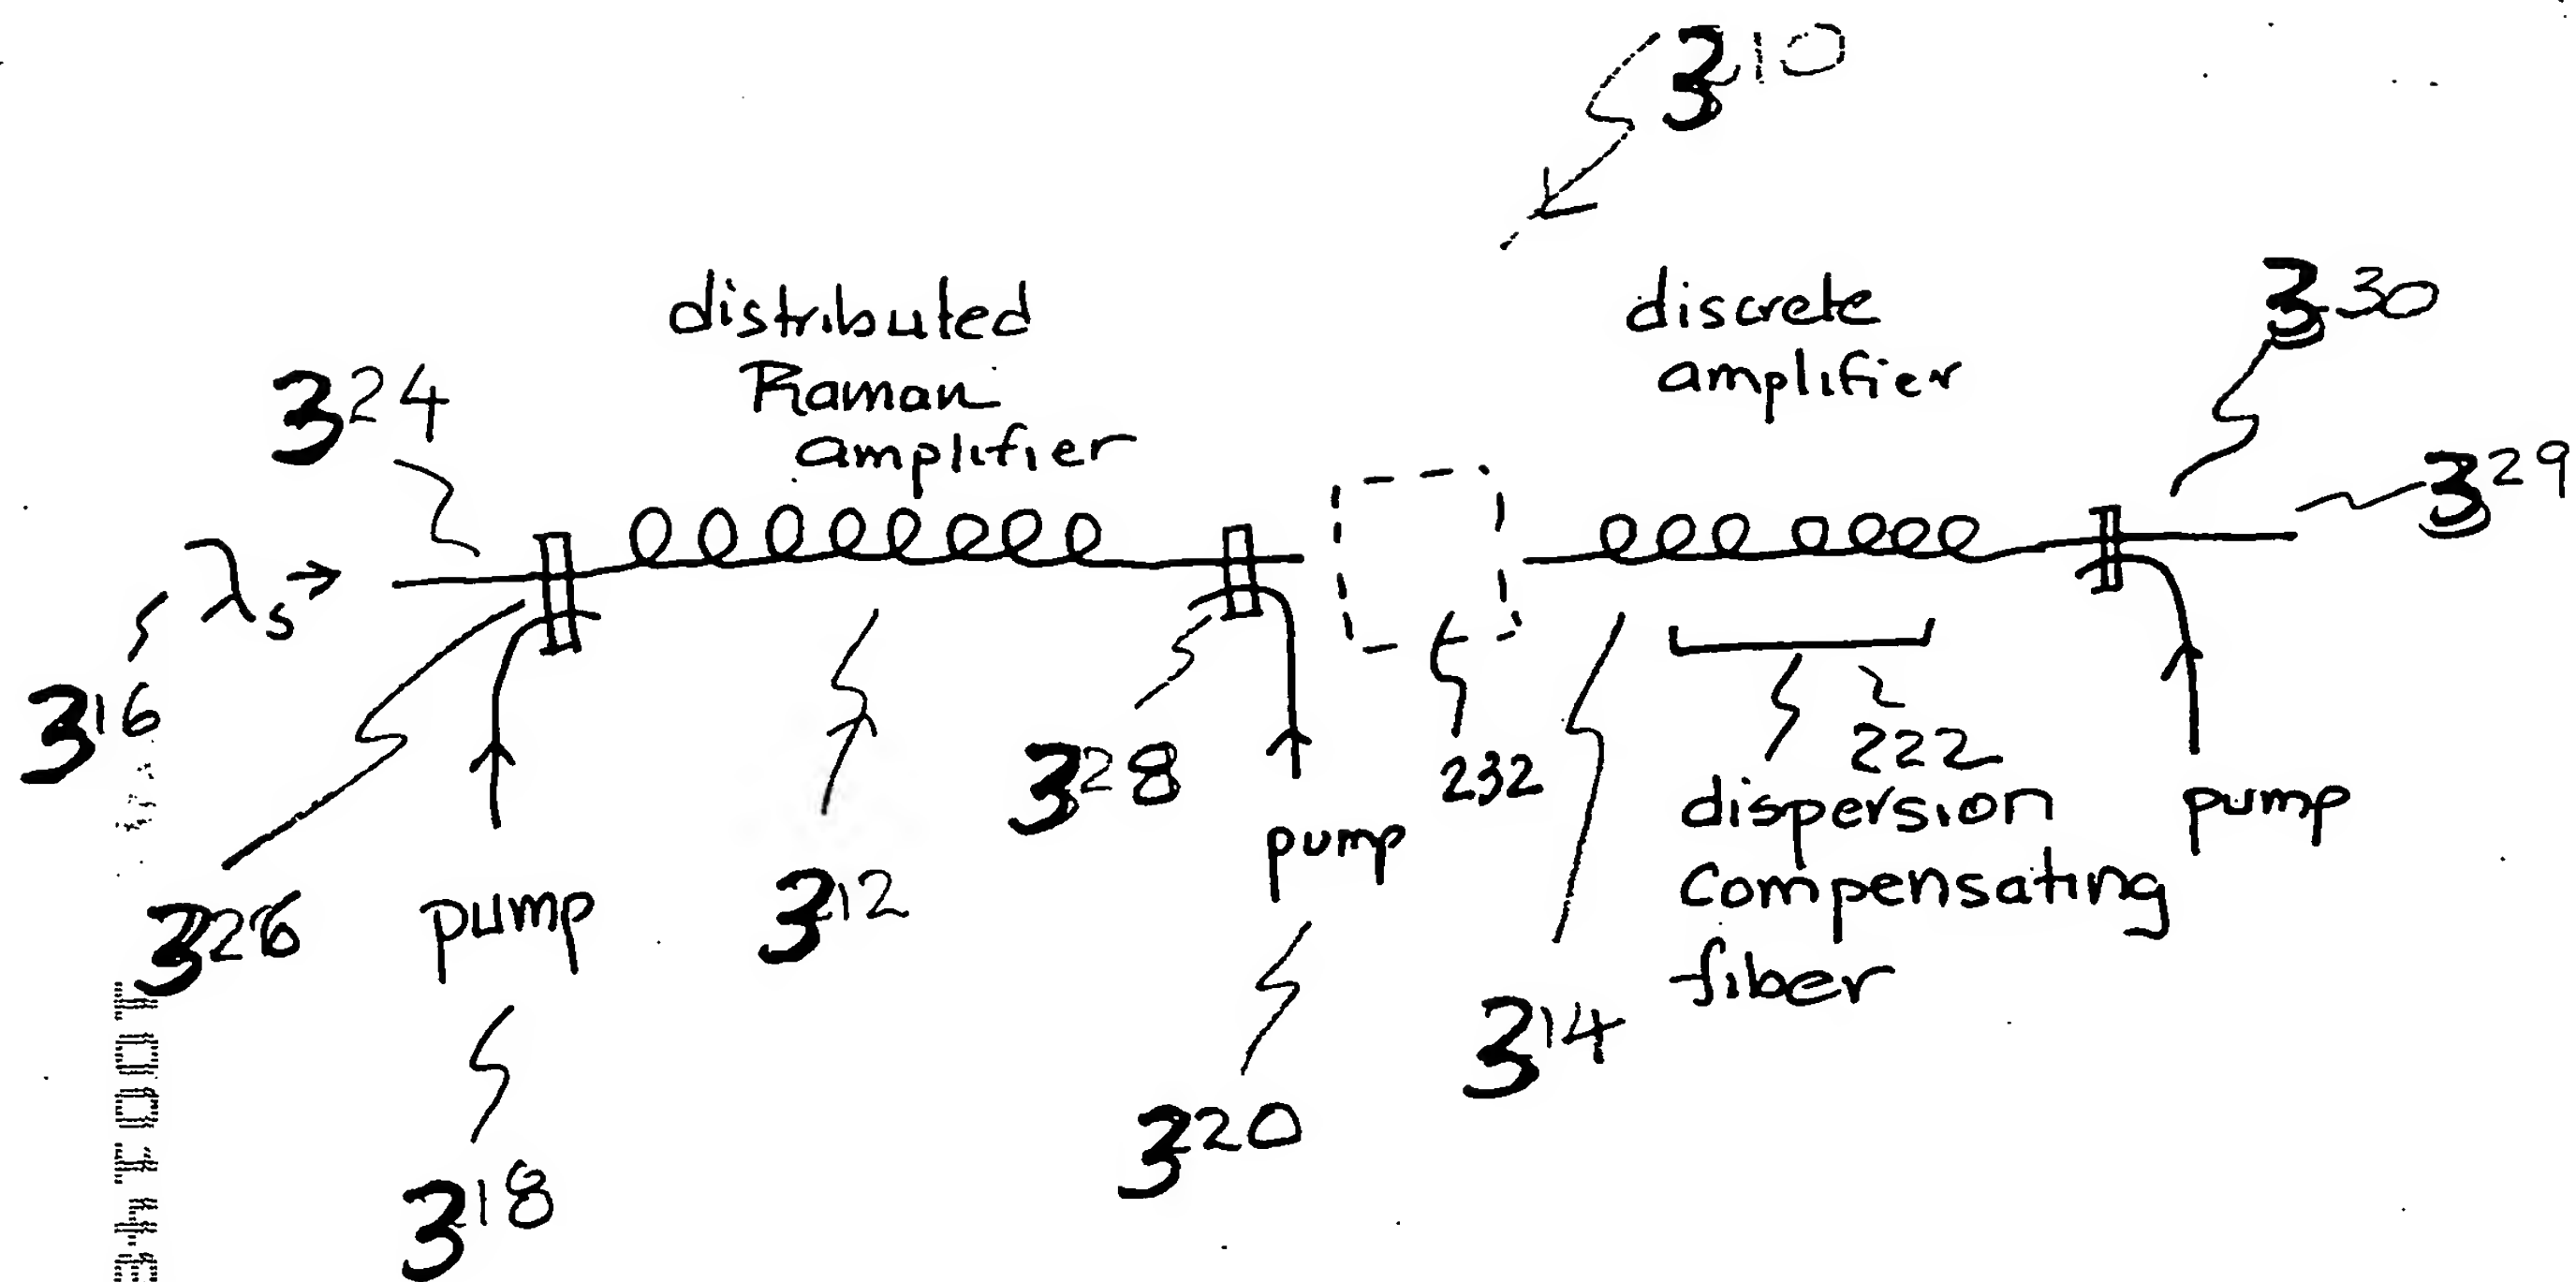 310
distributed
Raman
amplifier
discrete
amplifier
330
324
329
λs →
316
328
232
222
dispersion
compensating
fiber
pump
pump
326
pump
312
314
320
318